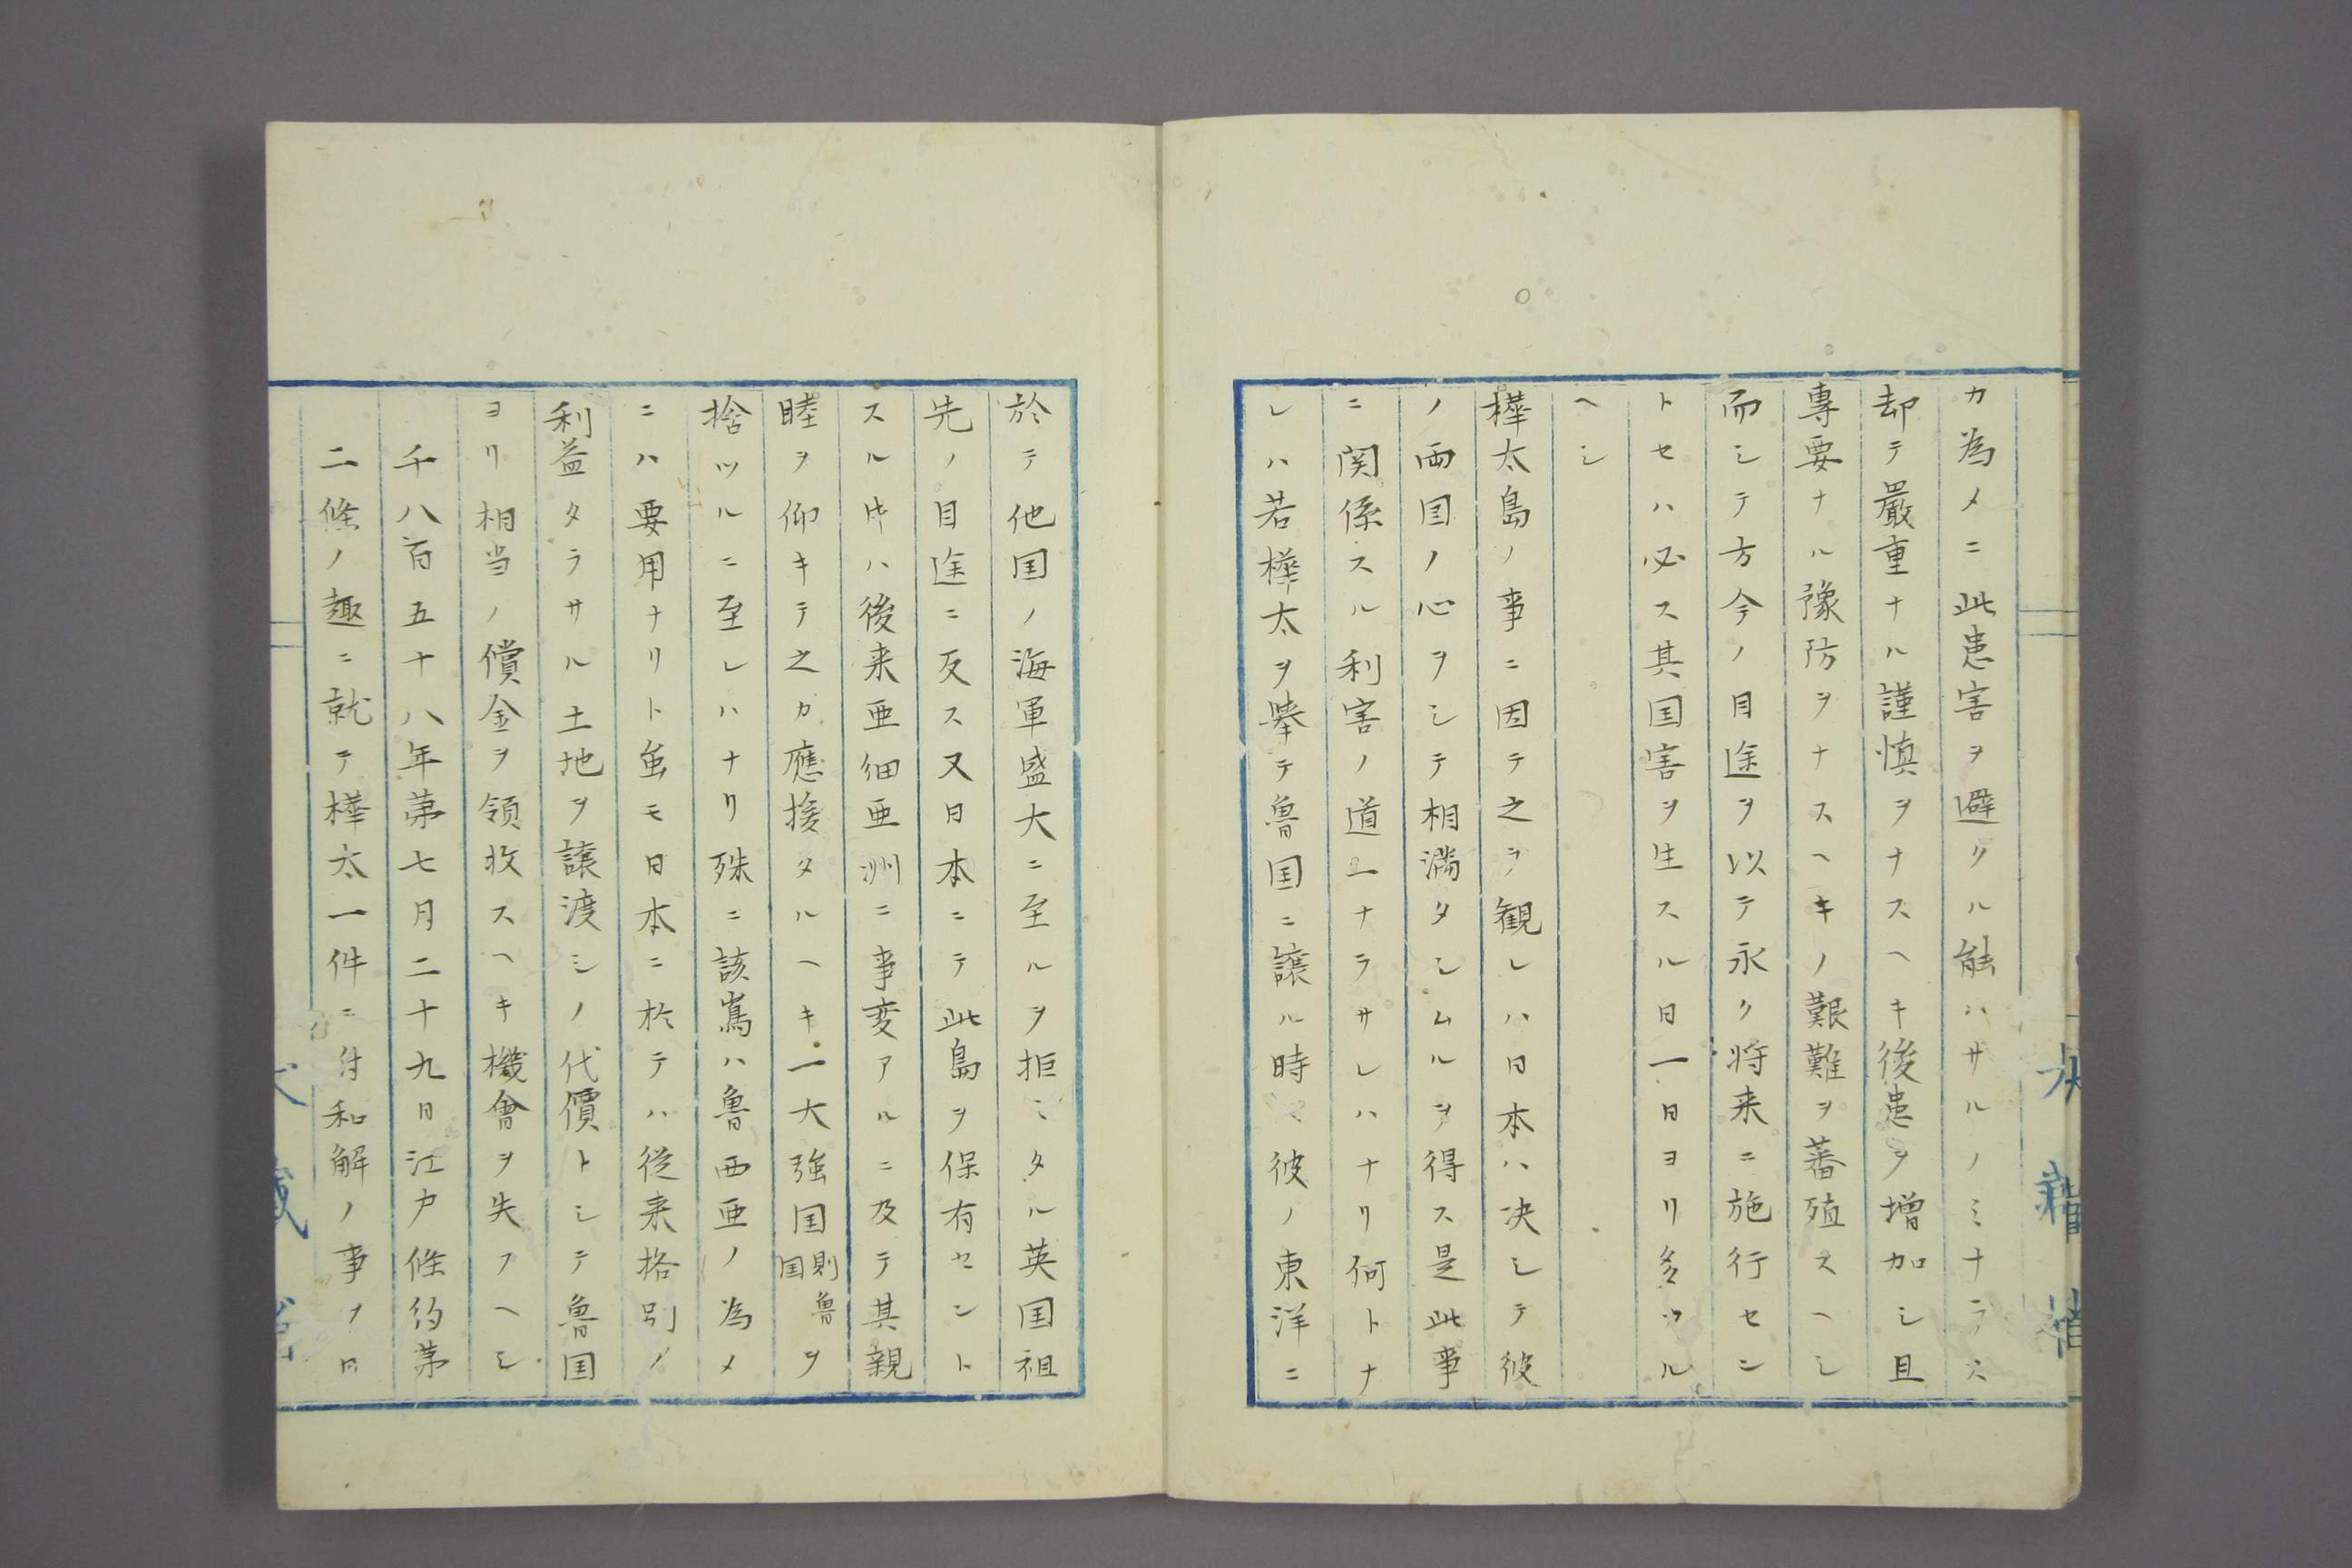 カ為メニ此患害ヲ避クル能ハサルノミナラス
却テ嚴重ナル謹慎ヲナスヘキ後患ヲ增加シ且
專要ナル豫防ヲナスヘキノ艱難ヲ蕃殖スヘシ
而シテ方今ノ目途ヲ以テ永ク将来ニ施行セン
トセハ必ス其国害ヲ生スル日一日ヨリ多カル
ヘシ
樺太島ノ事ニ因テ之ヲ観レハ日本ハ决シテ彼
ノ両国ノ心ヲシテ相満タシムルヲ得ス是此事
ニ関係スル利害ノ道一ナラサレハナリ何トナ
レハ若樺太ヲ擧テ魯国ニ譲ル時ハ彼ノ東洋ニ
於テ他国ノ海軍盛大ニ至ルヲ拒ミタル英国祖
先ノ目途ニ反ス又日本ニテ此島ヲ保有セント
スル片ハ後来亜細亜洲ニ事変アルニ及テ其親
睦ヲ仰キテ之カ應援タルヘキ一大強国則魯国ヲ
捨ツルニ至レハナリ殊ニ該嶌ハ魯西亜ノ為メ
ニハ要用ナリト虽モ日本ニ於テハ従来格別ノ
利益タラサル土地ヲ譲渡シノ代價トシテ魯国
ヨリ相当ノ償金ヲ領收スヘキ機會ヲ失フヘシ
千八百五十八年第七月二十九日江戸條約第
二條ノ趣ニ就テ樺太一件ニ付和解ノ事ヲ日